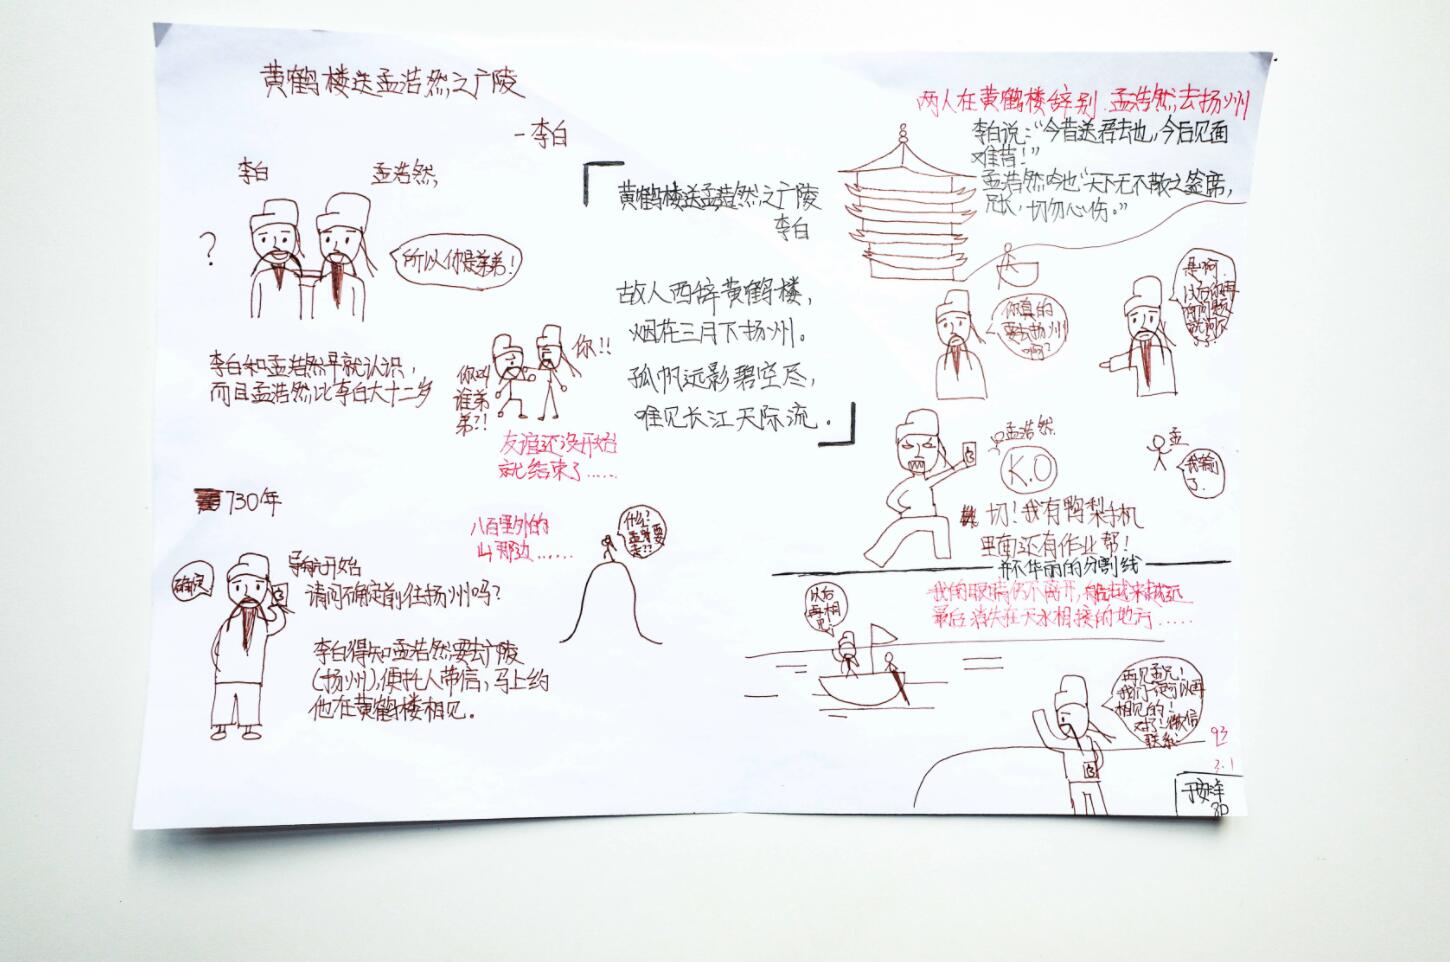 黄鹤楼送孟浩然之广陵
-李白
李白
孟浩然
?
所以你是弟弟!
李白和孟浩然早就认识,
而且孟浩然比李白大十二岁
你叫
谁弟
弟?!
你!!
友谊还没开始
就结束了......
黄鹤楼送孟浩然之广陵
李白
故人西辞黄鹤楼,
烟花三月下扬州。
孤帆远影碧空尽,
唯见长江天际流.
730年
确定
导航开始
请问确定前往扬州吗?
李白得知孟浩然要去广陵
(扬州),便托人带信,马上约
他在黄鹤楼相见.
八百里外的
山那边......
什么?
要走??
两人在黄鹤楼辞别.孟浩然去扬州
李白说:“今昔送君去也,今后见面
难苦!”
孟浩然吟也“天下无不散之筵席,
兄长,切勿心伤.”
你真的
要去扬州
啊?
是啊.
以后你再
有问题
孟浩然
K.O
孟
我输
了.
切!我有鸭梨手机
里面还有作业帮!
并不华丽的分割线
我的眼睛仍不离开,船越来越远
最后消失在天水相接的地方.....
以后
再相
见!
再见孟兄!
我们还可以再
相见的!
对了!微信
联系!
93
2.1